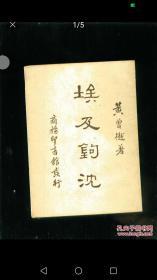 1/5
黄曾樾著
埃及鉤沈
商務印書館發行
孔夫子旧书网